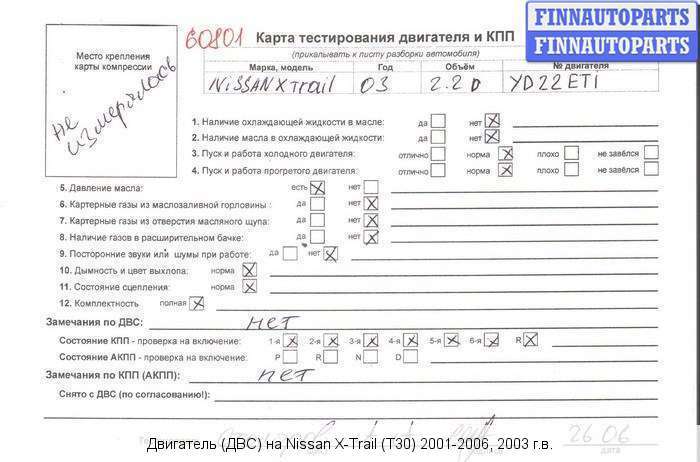 60801 Карта тестирования двигателя и КПП
(прикалывать к листу разборки автомобиля)
FINNAUTOPARTS
FINNAUTOPARTS
Место крепления
карты компрессии
не
измерялась
Марка, модель Год Объём № двигателя
NiSSAN XTrail 03 2.2D YD22ETI
1. Наличие охлаждающей жидкости в масле: да нет X
2. Наличие масла в охлаждающей жидкости: да нет X
3. Пуск и работа холодного двигателя: отлично норма X плохо не завёлся
4. Пуск и работа прогретого двигателя: отлично норма X плохо не завёлся
5. Давление масла: есть X нет
6. Картерные газы из маслозаливной горловины : да нет X
7. Картерные газы из отверстия масляного щупа: да нет X
8. Наличие газов в расширительном бачке: да нет X
9. Посторонние звуки или шумы при работе: да нет X
10. Дымность и цвет выхлопа: норма X
11. Состояние сцепления: норма X
12. Комплектность полная X
Замечания по ДВС: нет
Состояние КПП - проверка на включение: 1-я X 2-я X 3-я X 4-я X 5-я X 6-я X R X
Состояние АКПП - проверка на включение: P R N D
Замечания по КПП (АКПП): нет
Снято с ДВС (по согласованию!):
26 06
дата
Двигатель (ДВС) на Nissan X-Trail (T30) 2001-2006, 2003 г.в.